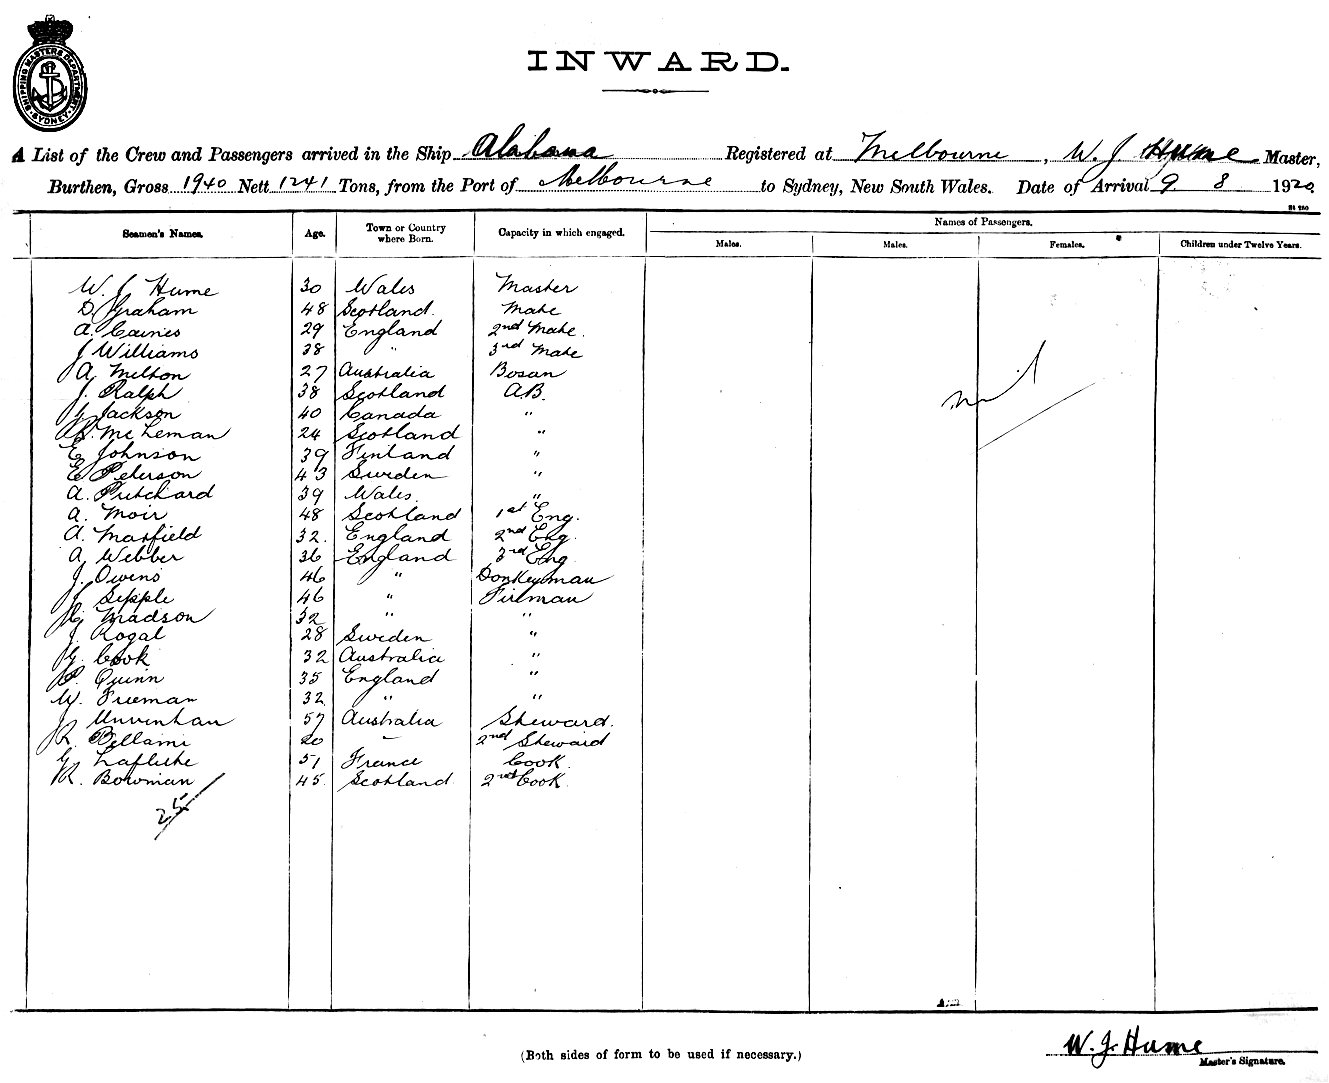 SHIPPING MASTERS DEPARTMENT SYDNEY
INWARD.
A List of the Crew and Passengers arrived in the Ship Alabama Registered at Melbourne, W. J Hume Master,
Burthen, Gross 1940 Nett 1241 Tons, from the Port of Melbourne to Sydney, New South Wales. Date of Arrival 9 8 1920
Seamen's Names. Age. Town or Country where Born. Capacity in which engaged. Names of Passengers.
Males. Males. Females. Children under Twelve Years.
W. J Hume 30 Wales Master
D. Graham 48 Scotland. Mate
A. Caines 29 England 2nd Mate.
J Williams 38 " 3rd Mate
A. Melton 27 Australia Bosan
J. Ralph 38 Scotland A.B.
Jackson 40 Canada "
McLeman 24 Scotland "
E Johnson 39 Finland "
E Peterson 43 Sweden "
A. Pritchard 39 Wales. "
A. Moir 48 Scotland 1st Eng.
A. Maxfield 32. England 2nd Eng.
A. Webber 36 England 3rd Eng
J. Owens 46 " Donkeyman
J Sepple 46 " Fireman
Madson 32 " "
J. Rogal 28 Sweden "
G. Cook 32 Australia "
P. Quinn 35 England "
W. Freeman 32 " "
J. 57 Australia Steward.
R. Bellami 20 – 2nd Steward
G. 51 France Cook.
R. Bowman 45. Scotland. 2nd Cook.
nil
25
(Both sides of form to be used if necessary.)
W. J. Hume
Master's Signature.